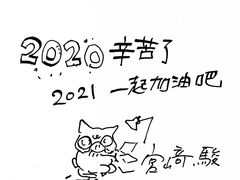 2020 辛苦了
2021 一起加油吧
宮﨑駿